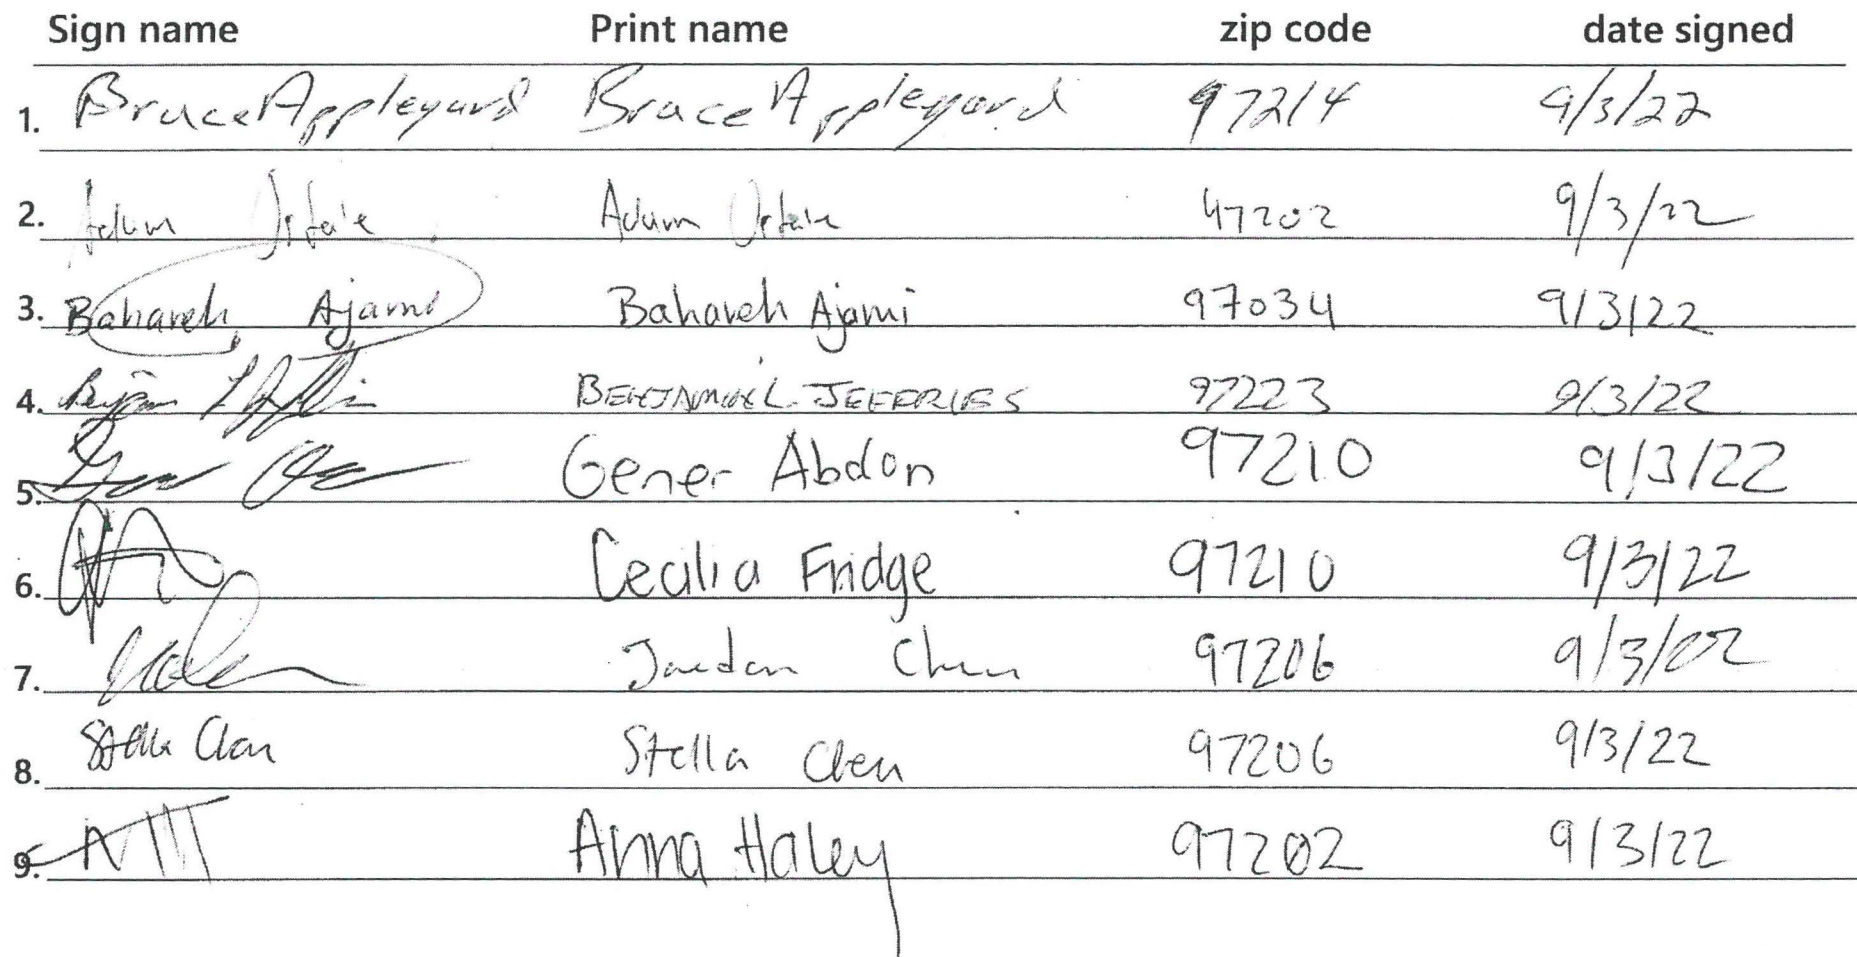 Sign name Print name zip code date signed
1. Bruce Appleyard Bruce Appleyard 97214 9/3/22
2. Adam Adam 97202 9/3/22
3. Bahareh Ajami Bahareh Ajami 97034 9/3/22
4. JEFFRIES 97223 9/3/22
5. Gener Abdon 97210 9/3/22
6. Cecilia Fridge 97210 9/3/22
7. Jaedon Chen 97206 9/3/22
8. Stella Chen Stella Chen 97206 9/3/22
9. Anna Haley 97202 9/3/22